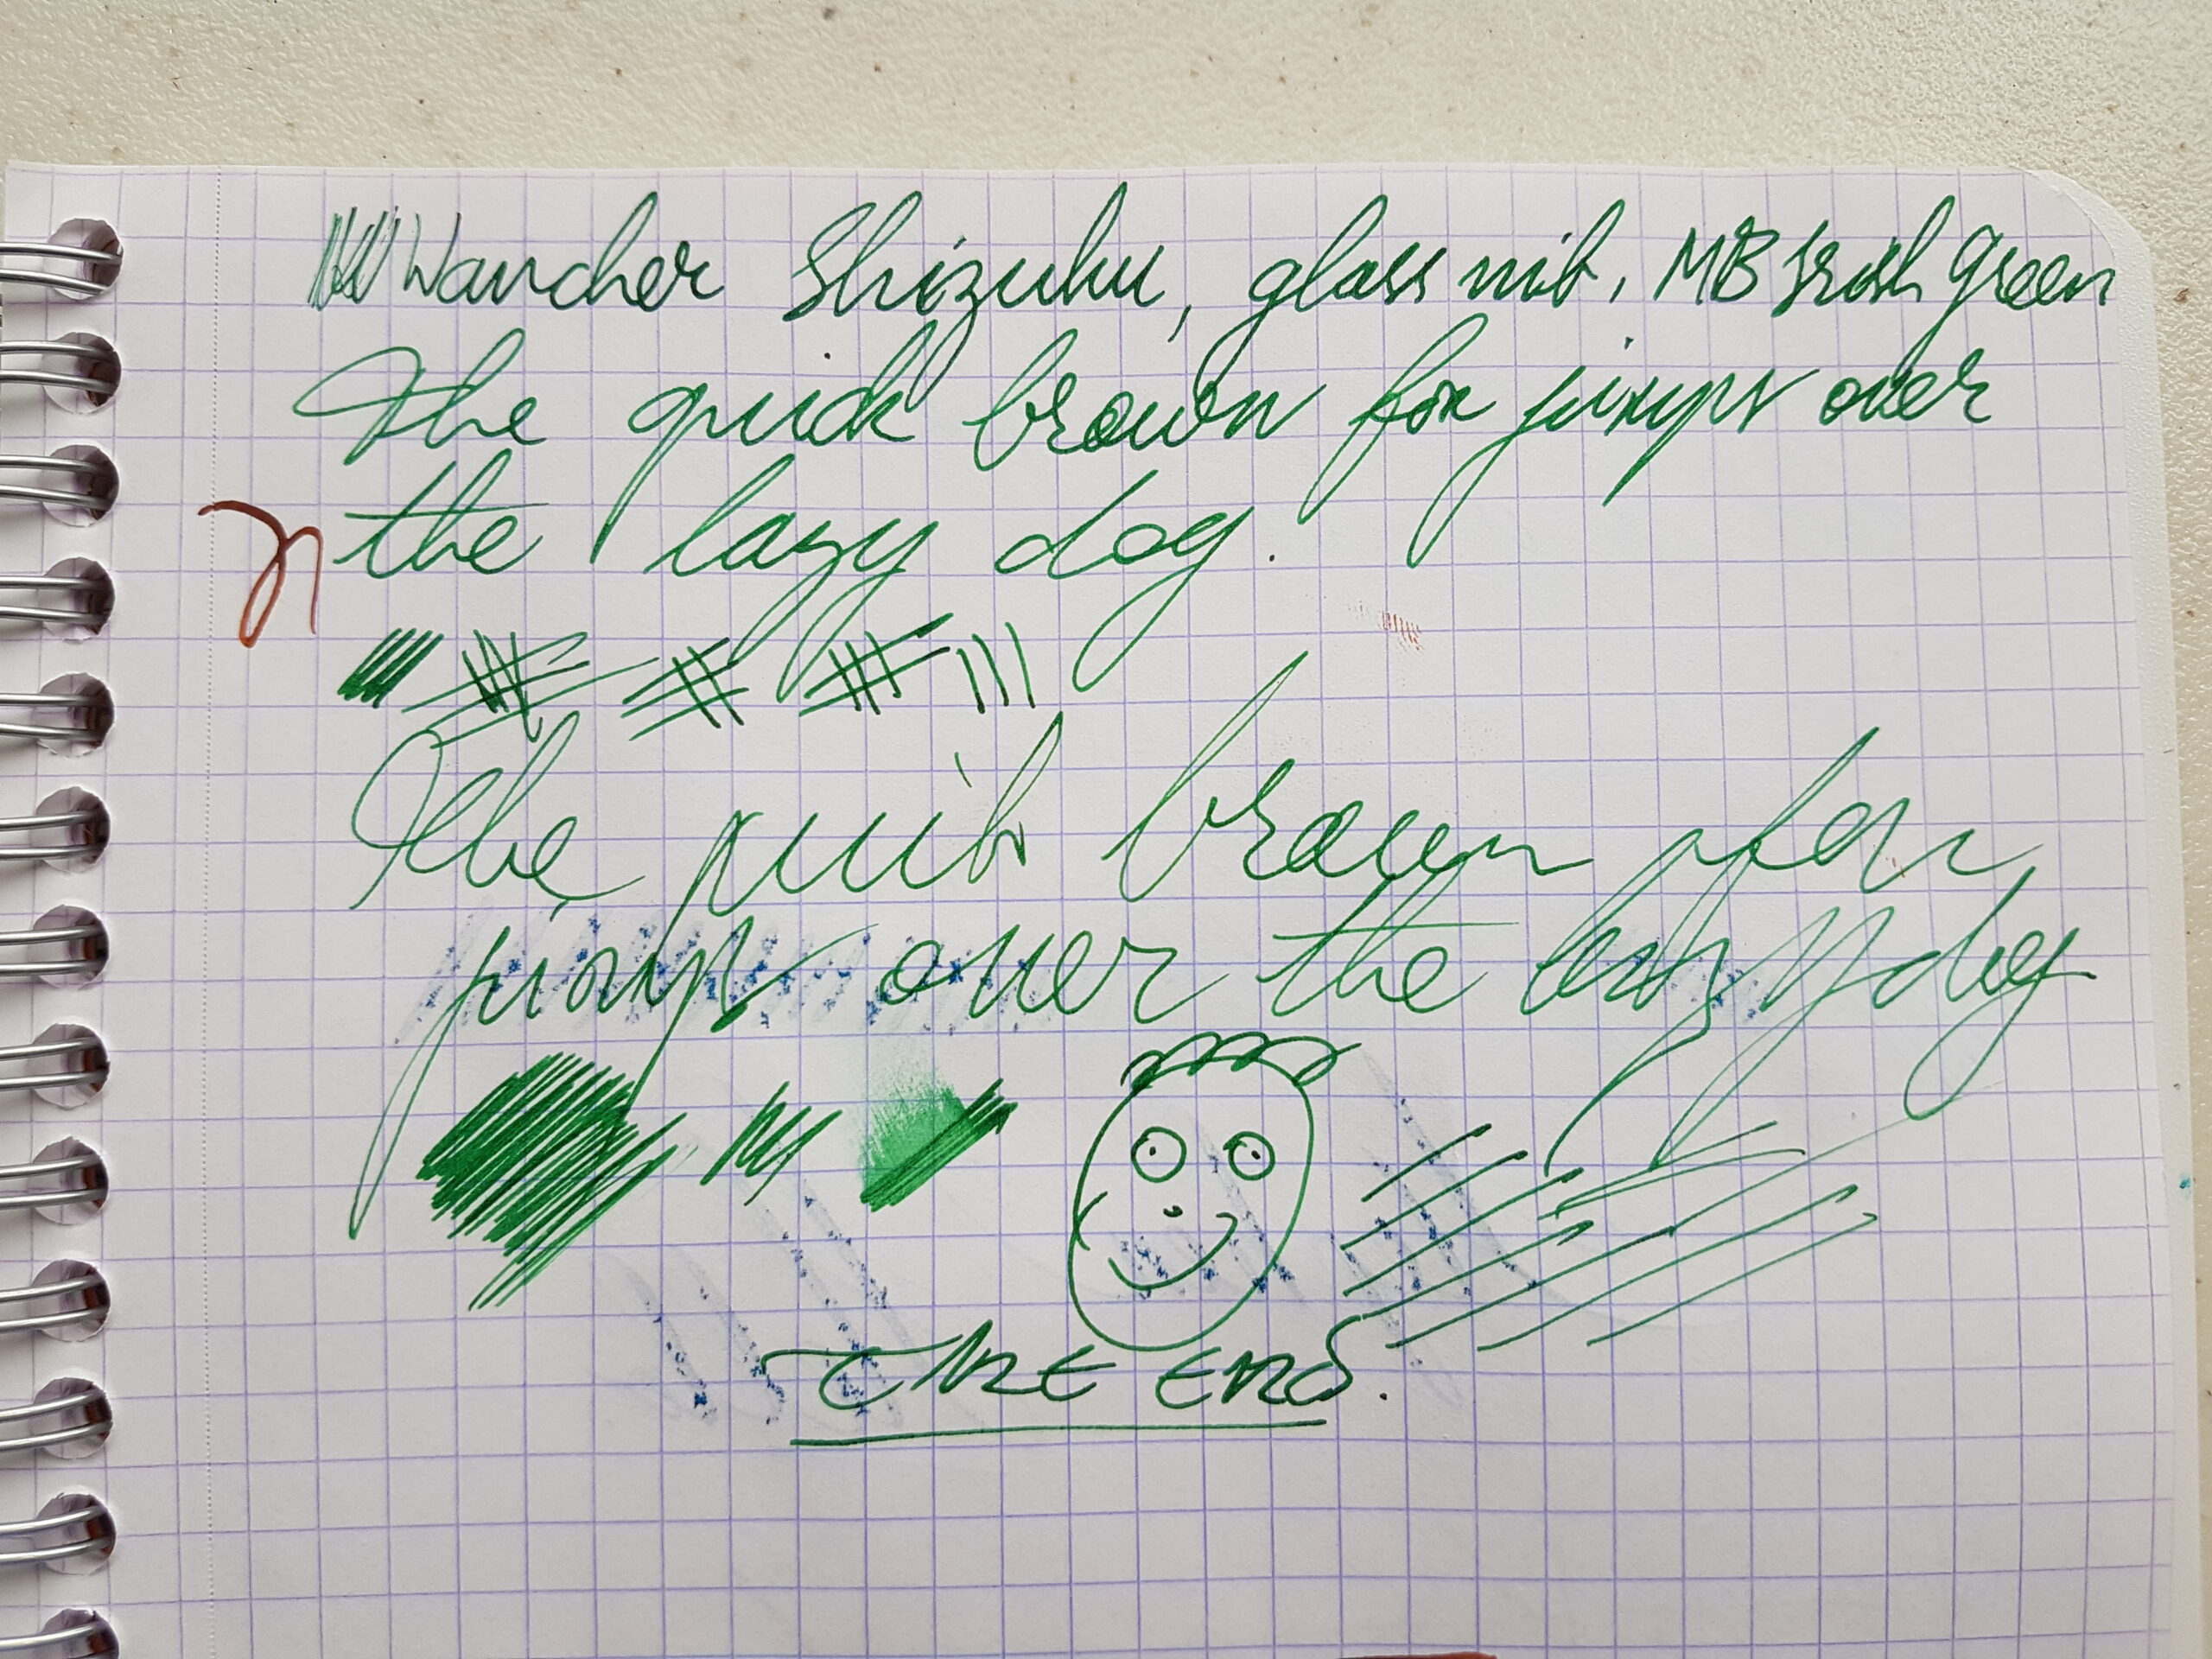 Wancher Shizuku, glass nib, MB Irish Green
The quick brown fox jumps over
the lazy dog.
The quick brown fox
jumps over the lazy dog
THE END.